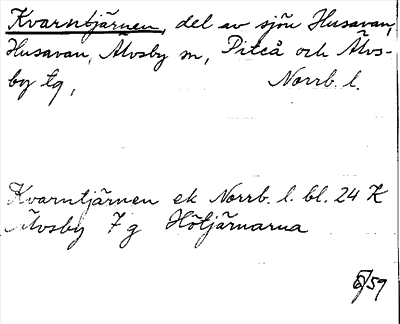 Kvarntjärnen, del av sjön Husavan,
Husavan, Älvsby sn, Piteå och Älvs-
by tg, Norrb. l.
Kvarntjärnen ek Norrb. l. bl. 24 K
Älvsby 7 g Hötjärnarna
59